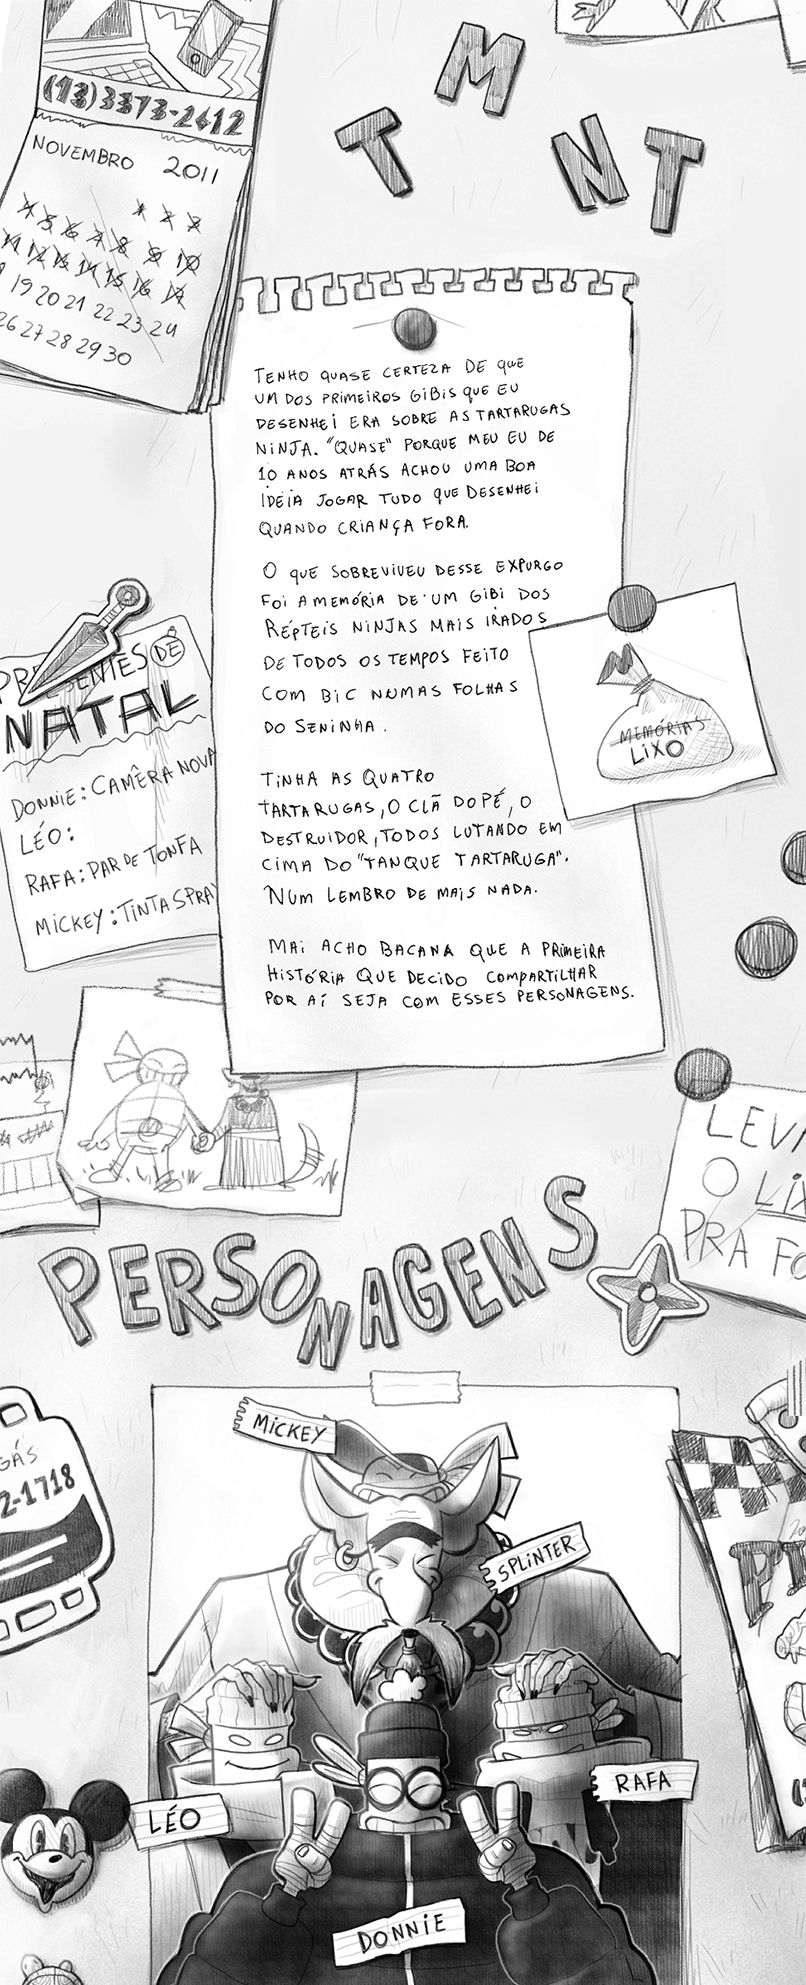 (13)3373-2612
NOVEMBRO 2011
1 2 3
4 5 6 7 8 9 10
11 12 13 14 15 16 17
19 20 21 22 23 24
26 27 28 29 30
T M N T
TENHO QUASE CERTEZA DE QUE
UM DOS PRIMEIROS GIBIS QUE EU
DESENHEI ERA SOBRE AS TARTARUGAS
NINJA. "QUASE" PORQUE MEU EU DE
10 ANOS ATRÁS ACHOU UMA BOA
IDEIA JOGAR TUDO QUE DESENHEI
QUANDO CRIANÇA FORA.
O QUE SOBREVIVEU DESSE EXPURGO
FOI A MEMÓRIA DE UM GIBI DOS
RÉPTEIS NINJAS MAIS IRADOS
DE TODOS OS TEMPOS FEITO
COM BIC NUMAS FOLHAS
DO SENINHA.
TINHA AS QUATRO
TARTARUGAS, O CLÃ DO PÉ, O
DESTRUIDOR, TODOS LUTANDO EM
CIMA DO "TANQUE TARTARUGA".
NUM LEMBRO DE MAIS NADA.
MAI ACHO BACANA QUE A PRIMEIRA
HISTÓRIA QUE DECIDO COMPARTILHAR
POR AÍ SEJA COM ESSES PERSONAGENS.
MEMÓRIAS
LIXO
PRESENTES DE
NATAL
DONNIE: CAMÊRA NOVA
LÉO:
RAFA: PAR DE TONFA
MICKEY: TINTA SPRAY
LEVA
O LIX
PRA FO
PERSONAGENS
GÁS
2-1718
MICKEY
SPLINTER
LÉO
RAFA
DONNIE